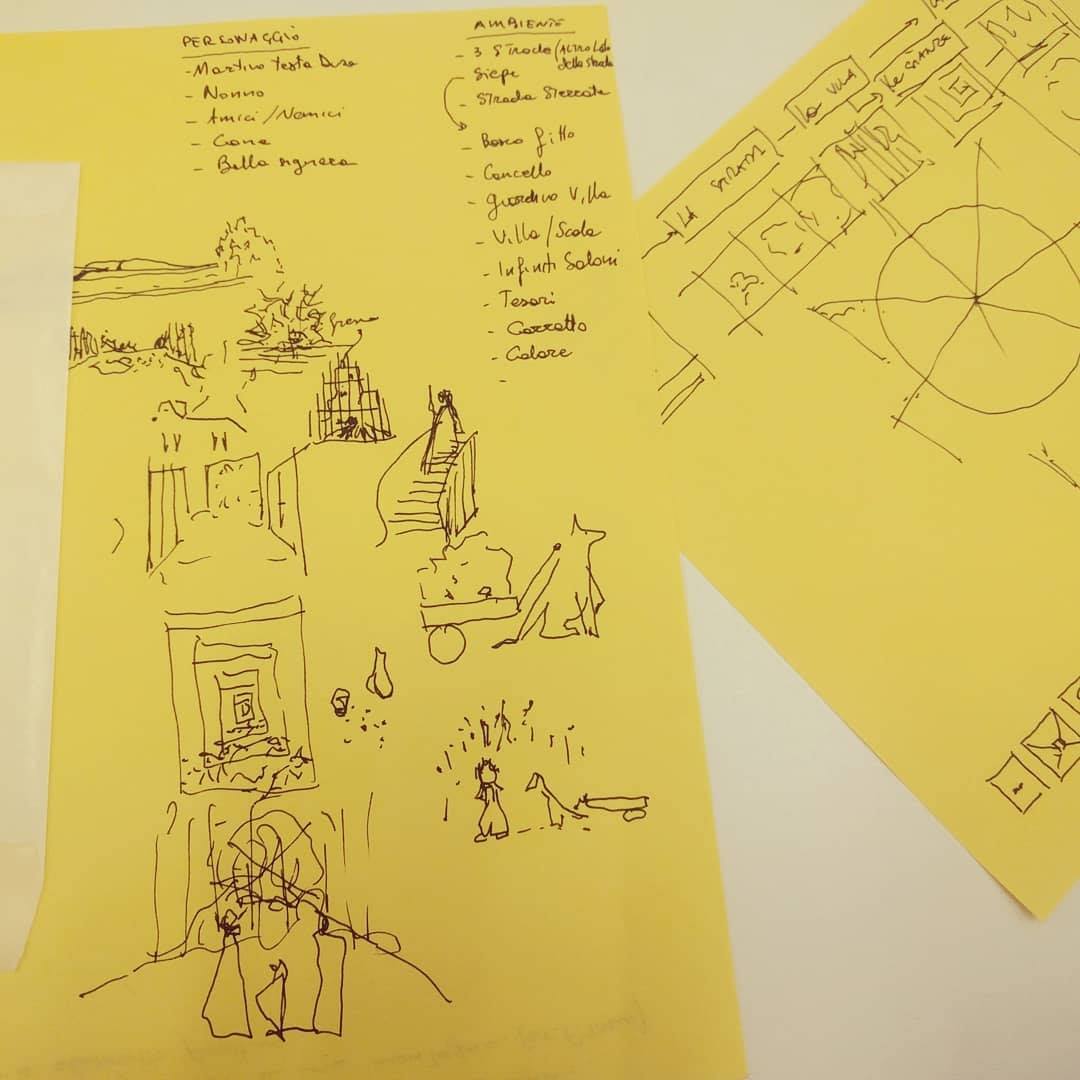 PERSONAGGIO
- Martino testa Dura
- Nonno
- Amici/Nemici
- Cane
- Bella signora
AMBIENTE
- 3 Strade (ALTRO Lato
della strada
Siepe
- Strada Sterrata
- Bosco fitto
- Cancello
- giardino Villa
- Villa/Scala
- Infiniti Saloni
- Tesori
- Carretto
- Calore
-
LA STRADA
LA VILLA
Le STANZE